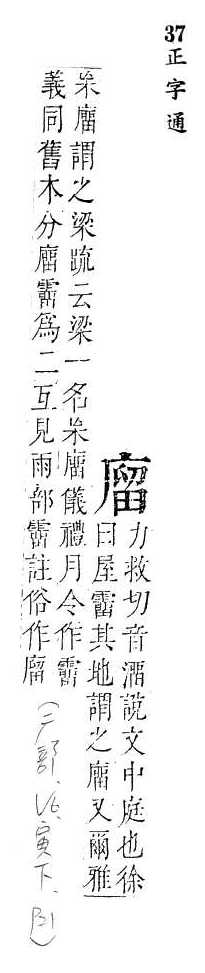 37 正字通
廇力救切音溜說文中庭也徐
曰屋霤其地謂之廇又爾雅
杗廇謂之梁疏云梁一名杗廇儀禮月令作霤
義同舊本分廇霤爲二互見雨部霤註俗作廇
(广部、寅下、31)